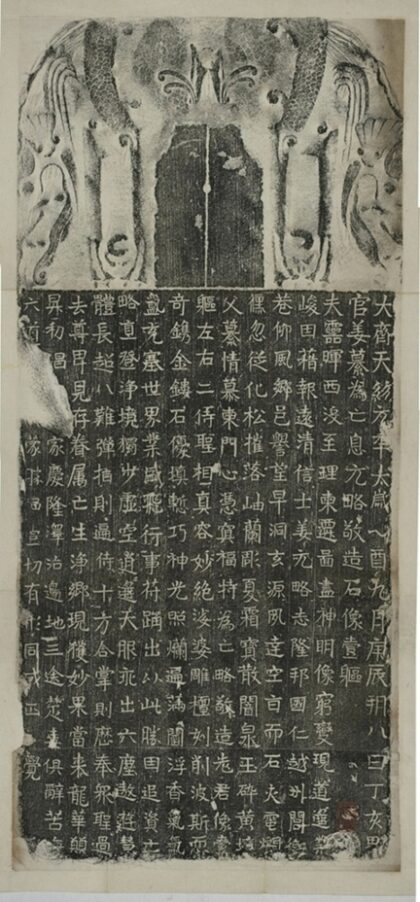 大齊天統元年太歲乙酉九月庚辰朔八日丁亥男
官姜纂為亡息元略敬造石像壹軀
夫靈暉西沒至理東遷啚盡神明像窮變現道
峻因藉報遠清信士姜元略志隆邦國仁越州閭衢
巷仰風鄉邑譽望早洞玄源夙達空旨而石火電爥
倏忽從化松摧落岫蘭彫夏霜寶散闇泉玉碎黃壚
父纂情慕東門心憑冥福特為亡略敬造老君像壹
軀左右二侍聖相真容妙絕娑婆雕檀刻削波斯恧
奇鎸金鏤石優填慙巧神光照爛遍滿閻浮香氣氤
氳充塞世界業盛飛行事符踊出以此勝因追資亡
略直登淨境獨步虛空逍遙天服永出六塵遨遊慧
體長超八難彈指則遍侍十方合掌則歷奉衆聖過
去尊卑見存眷屬亡生淨鄉現獲妙果當來龍華願
昇初唱家慶隆澤洽邊地三途楚毒俱辭苦
六道蒙切有形同成正覺